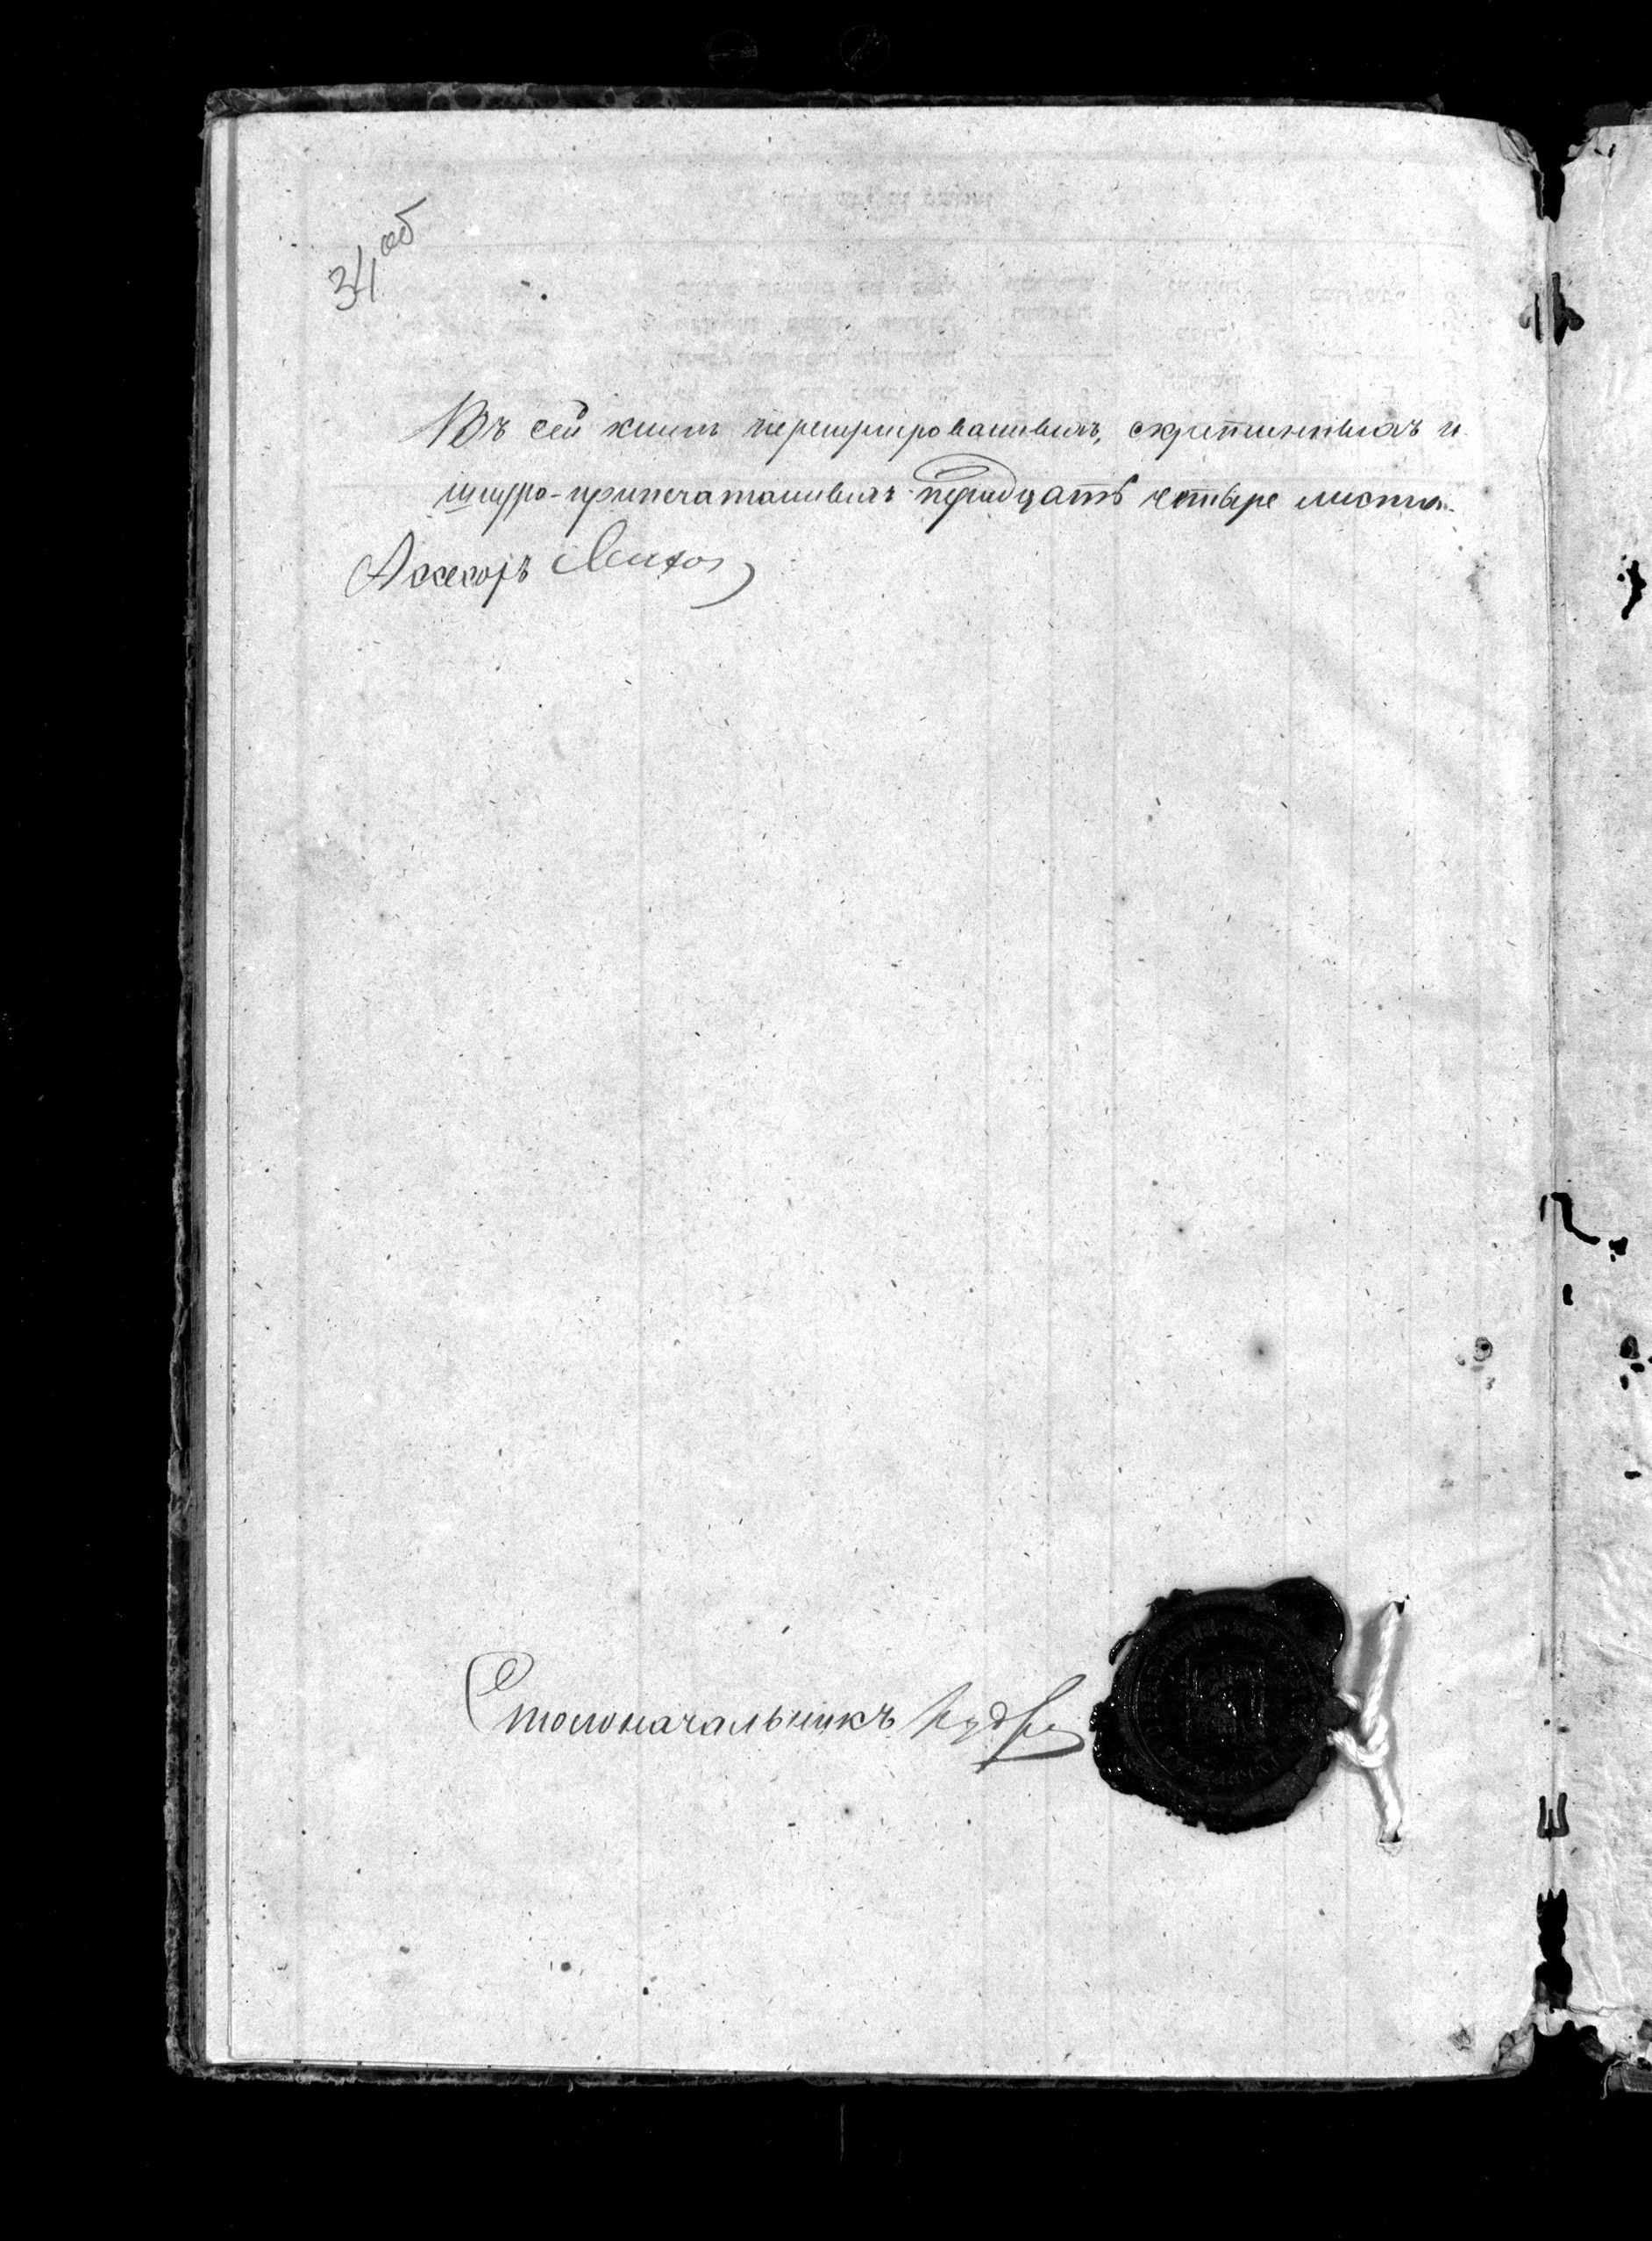 34 об
Въ сей книгѣ перенумерованныхъ, скрѣпленныхъ и
шнуро-припечатанныхъ тридцать четыре листа.
Ассесоръ
Столоначальникъ